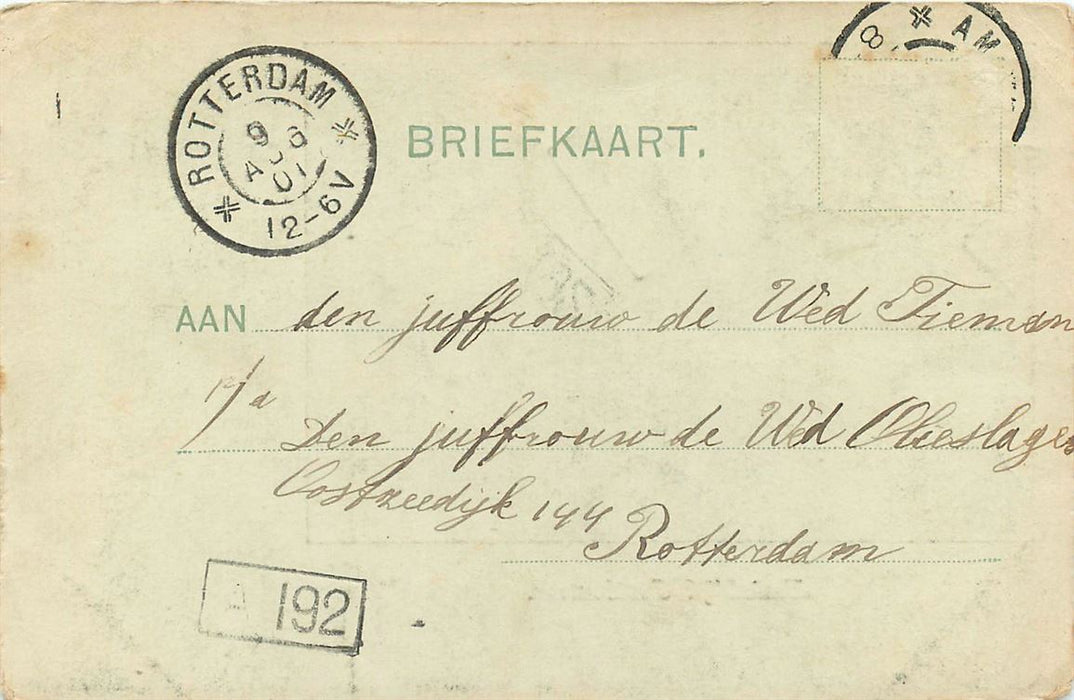 ROTTERDAM
9
AUG
01
12-6V
8 AM
BRIEFKAART.
AAN den juffrouw de Wed Tieman
p/a
Den juffrouw de Wed Olieslagers
Oostzeedijk 144
Rotterdam
A 192